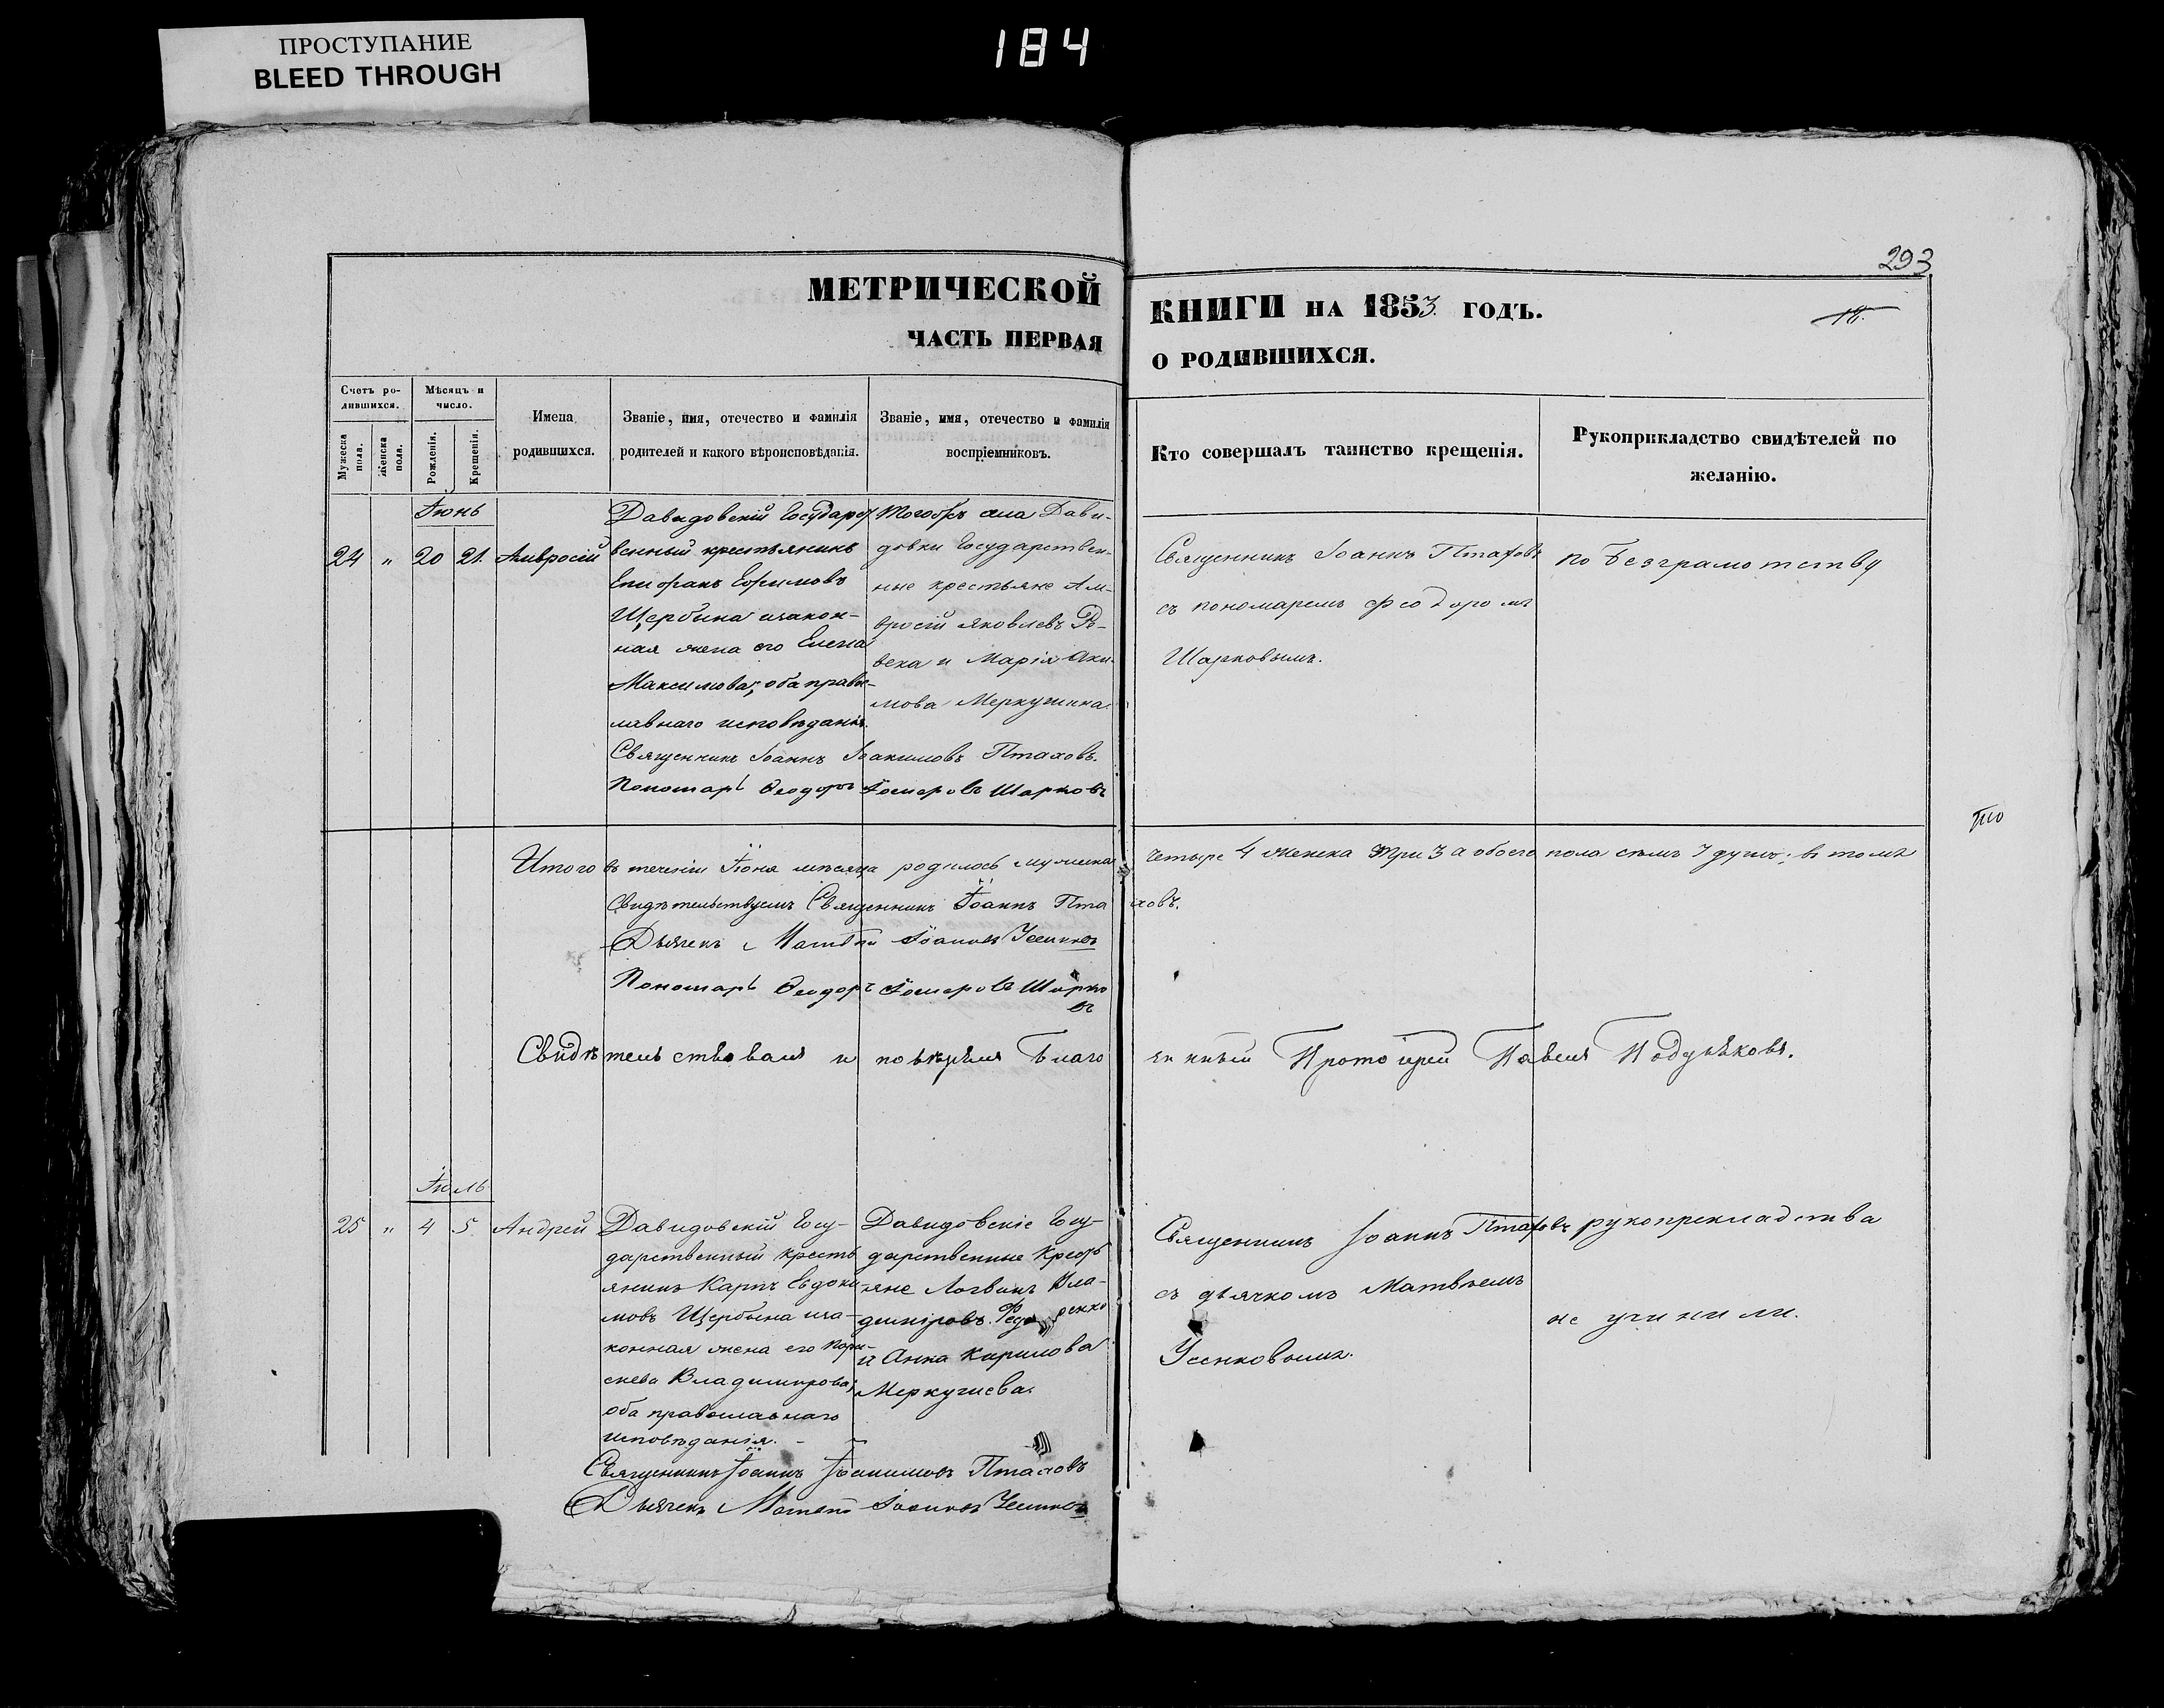 ПРОСТУПАНИЕ
BLEED THROUGH
184
293
МЕТРИЧЕСКОЙ КНИГИ НА 1853 ГОДЪ.
18.
ЧАСТЬ ПЕРВАЯ О РОДИВШИХСЯ.
Счетъ ро-
дившихся.
Мужеска пола.
Женска пола.
Мѣсяцъ и
число.
Рожденія.
Крещенія.
Имена
родившихся.
Званіе, имя, отечество и фамилія
родителей и какого вѣроисповѣданія.
Званіе, имя, отечество и фамилія
воспріемниковъ.
Кто совершалъ таинство крещенія.
Рукоприкладство свидѣтелей по
желанію.
Іюнь
24 " 20 21. Амвросій
Давидовскій Государст
венный крестьянинъ
Епифанъ Ефимовъ
Щербина изакон-
ная жена его Елена
Максимова; оба право-
славнаго исповѣданія.
Священникъ Іоаннъ Іоакимовъ Птаховъ.
Пономарь Ѳеодоръ Шарковъ
Тогожъ села Дави-
довки Государствен-
ные крестьяне Ам-
вросій Яковлевъ
и Марія Аки-
мова
Священникъ Іоаннъ Птаховъ
съ пономаремъ Феодоромъ
Шарковымъ.
по Безграмотству
Итого въ теченіи Іюня мѣсяца родилось мужеска четыре 4 женска три 3 а обоего пола семь 7 душъ; въ томъ
то
Свидѣтельствуемъ Священникъ Іоаннъ Птаховъ.
Дьячекъ Матвѣй Іоанновъ Усенковъ
Пономарь Ѳеодоръ Шарко
въ
Свидѣтельствовалъ и повѣрялъ Благо чинный Протоіерей Павелъ
Іюль
25 " 4 5 Андрей
Давидовскій Госу-
дарственный кресть
янинъ Карпъ Евдоки-
мовъ Щербина иза-
конная жена его
Владимирова;
оба православнаго
исповѣданія.
Священникъ Іоаннъ Іоакимовъ Птаховъ
Дьячекъ Матвѣй Іоанновъ Усенковъ
Давидовскіе Госу-
дарственные Кресть
яне Логвинъ Вла-
диміровъ Федоренко
и Анна Каримова
Священникъ Іоаннъ Птаховъ
съ дьячкомъ Матвѣемъ
Усенковымъ.
рукопрекладства
не учинили.